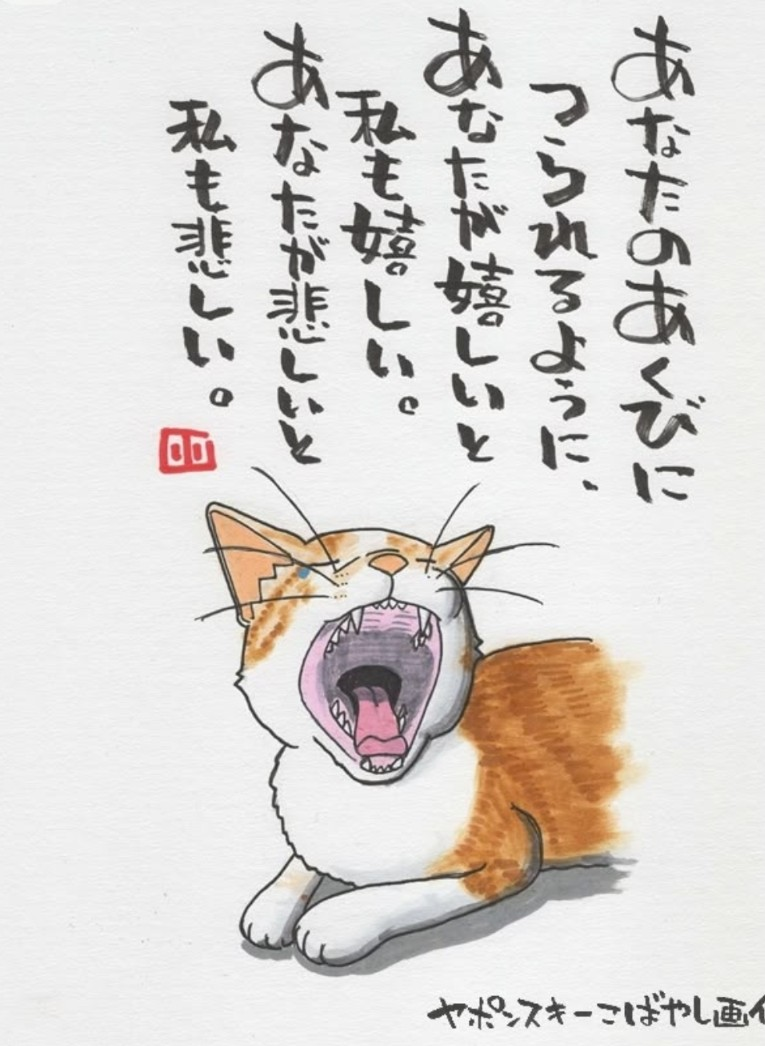 あなたのあくびに
つられるように、
あなたが嬉しいと
私も嬉しい。
あなたが悲しいと
私も悲しい。
ヤポンスキーこばやし画